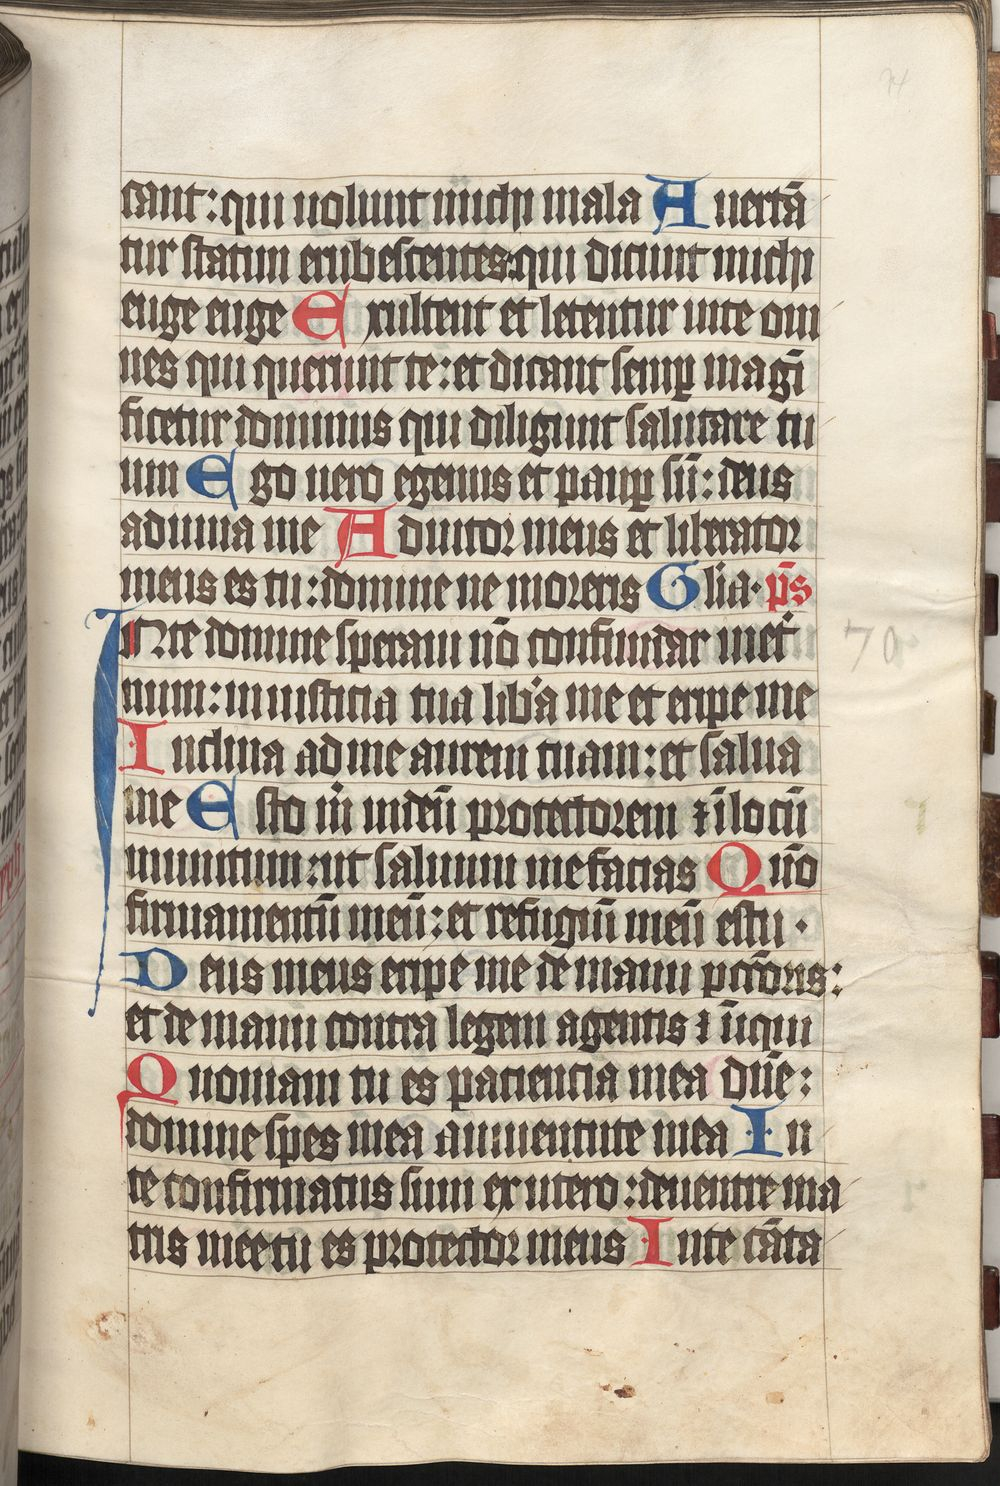 74
cant: qui uolunt michi mala Auertā
tur statim erubescentes: qui dicunt michi
euge euge Exultent et letentur in te om
nes qui querunt te: et dicant semꝑ magī
ficetur dominus qui diligunt salutare tu
um Ego uero egenus et pauꝑ sū: deus
adiuua me Adiutor meus et liberator
meus es tu: domine ne moreris Glīa · p̄s
INte domine speraui nō confundar in et̉
num: in iusticia tua lib̉a me et eripe me
70
Inclina ad me aurem tuam: et salua
me Esto m̄ in deū protectorem ⁊ ī locū
munitum: ut saluum me facias Qnō
firmamentū meū: et refugiū meū es tu ·
Deus meus eripe me de manu pctōris:
et de manu contra legem agentis ⁊ īiqui
Quoniam tu es paciencia mea dūe:
domine spes mea a iuuentute mea In
te confirmatus sum ex utero: de uentre ma
tris mee tu es protector meus In te cāta